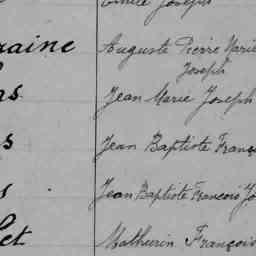 Emile Joseph
raine Auguste Pierre Marie
Joseph
rs Jean Marie Joseph
s Jean Baptiste Franç
s Jean Baptiste Francois Jo
et Mathurin François